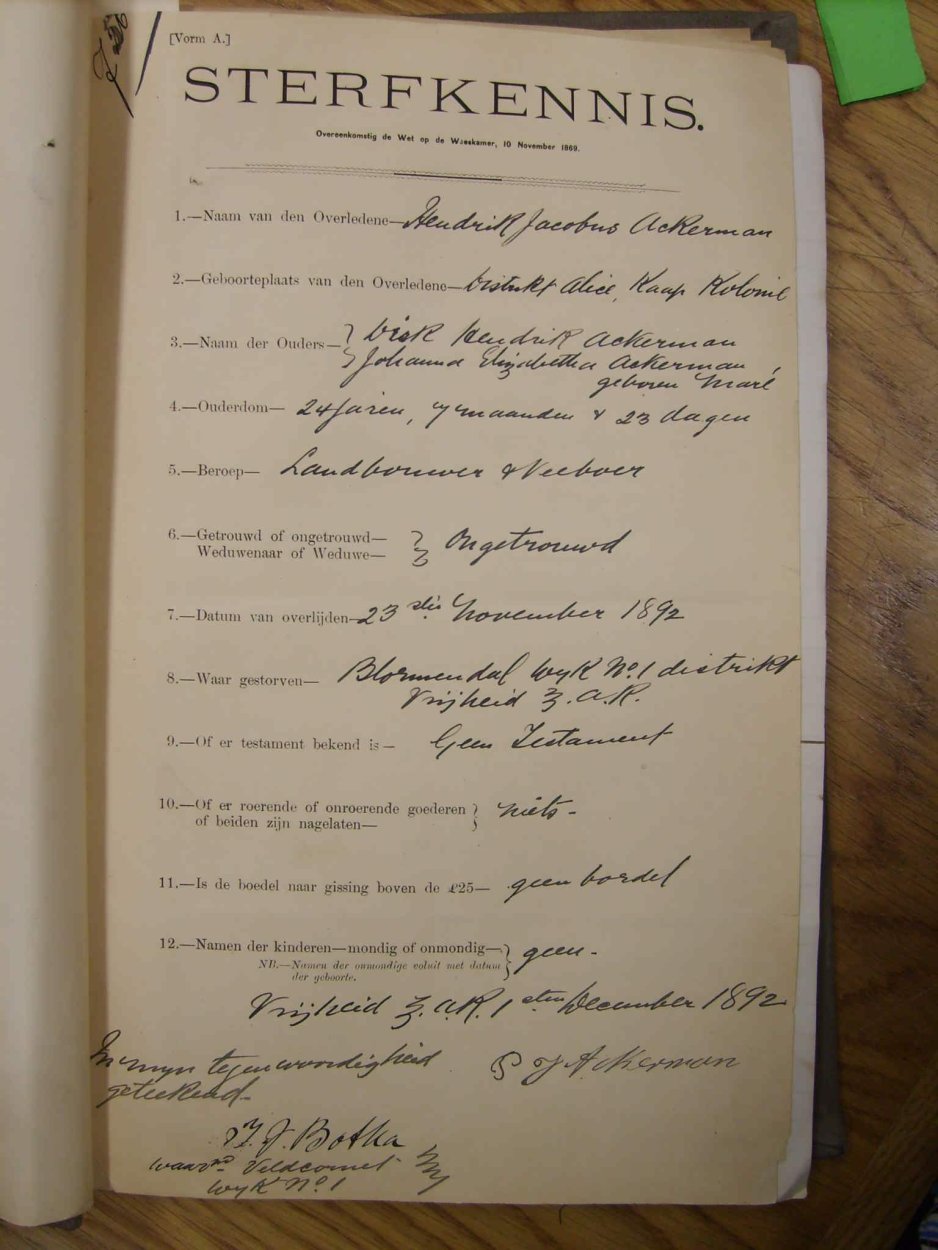 [Vorm A.]
STERFKENNIS.
Overeenkomstig de Wet op de Weeskamer, 10 November 1869.
1.—Naam van den Overledene—Hendrik Jacobus Ackerman
2.—Geboorteplaats van den Overledene—Distrikt Alice, Kaap Kolonie
3.—Naam der Ouders— Dirk Hendrik Ackerman
Johanna Elizabetha Ackerman,
geboren Maré
4.—Ouderdom— 24 jaren, 7 maanden & 23 dagen
5.—Beroep— Landbouwer & Veeboer
6.—Getrouwd of ongetrouwd—
Weduwenaar of Weduwe— Ongetrouwd
7.—Datum van overlijden—23 November 1892
8.—Waar gestorven— Bloemendal Wyk No. 1 distrikt
Vrijheid Z.A.R.
9.—Of er testament bekend is— Geen Testament
10.—Of er roerende of onroerende goederen
of beiden zijn nagelaten— niets -
11.—Is de boedel naar gissing boven de £25— geen boedel
12.—Namen der kinderen—mondig of onmondig— geen -
NB.—Namen der onmondige voluit met datum
der geboorte.
Vrijheid Z.A.R. 1sten December 1892
In myn tegenwoordigheid
geteekend.
J Ackerman
J. Botha
waarnd Veldcornet
Wyk No. 1